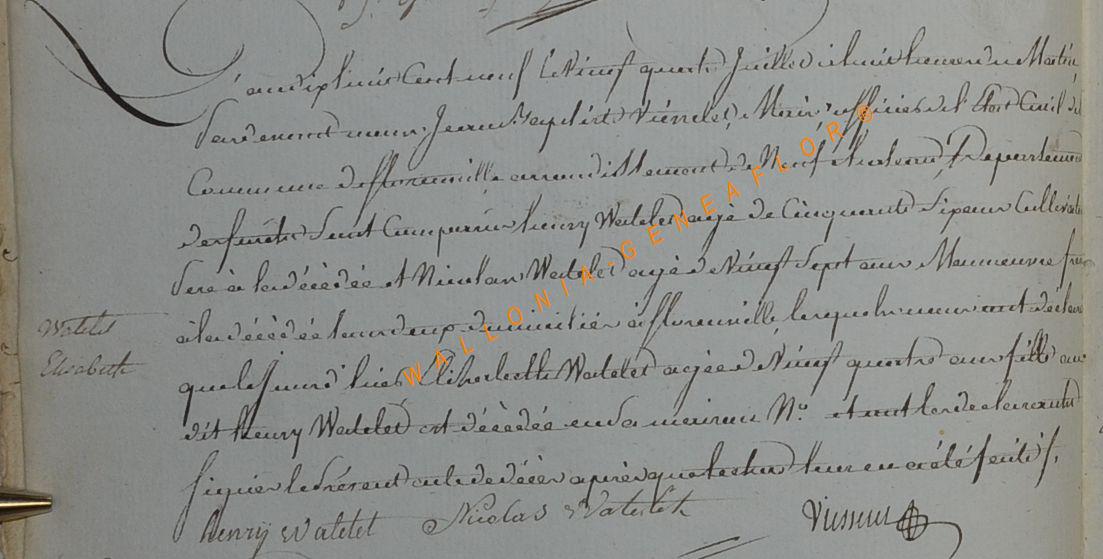 L'an dix huit Cent neuf le Vingt quatre Juillet à huit heures du Matin
Pardevant nous Jean Baptiste Maire officier de l'Etat Civil de
Commune de florenville arrondissement de Neufchateau Departement
des forets Sont Comparus henry Watelet agé de Cinquante Six ans Cultivateur
Pere à la décèdée et Nicolas Watelet agé de Vingt Sept ans Manoeuvre frere
à la décèdée tous deux domiciliés à florenville, lesquels nous ont déclaré
que le Jour d'hier Elisabeth Watelet agée de Vingt quatre ans fille au
dit henry Watelet est décèdée en Sa maison N.º et ont les declarants
Signés le Présent acte de décès après que lecture leur en a été faite
Watelet
Elisabeth
henry Watelet Nicolas Watelet
WALLONIA-GENEAFLOR©